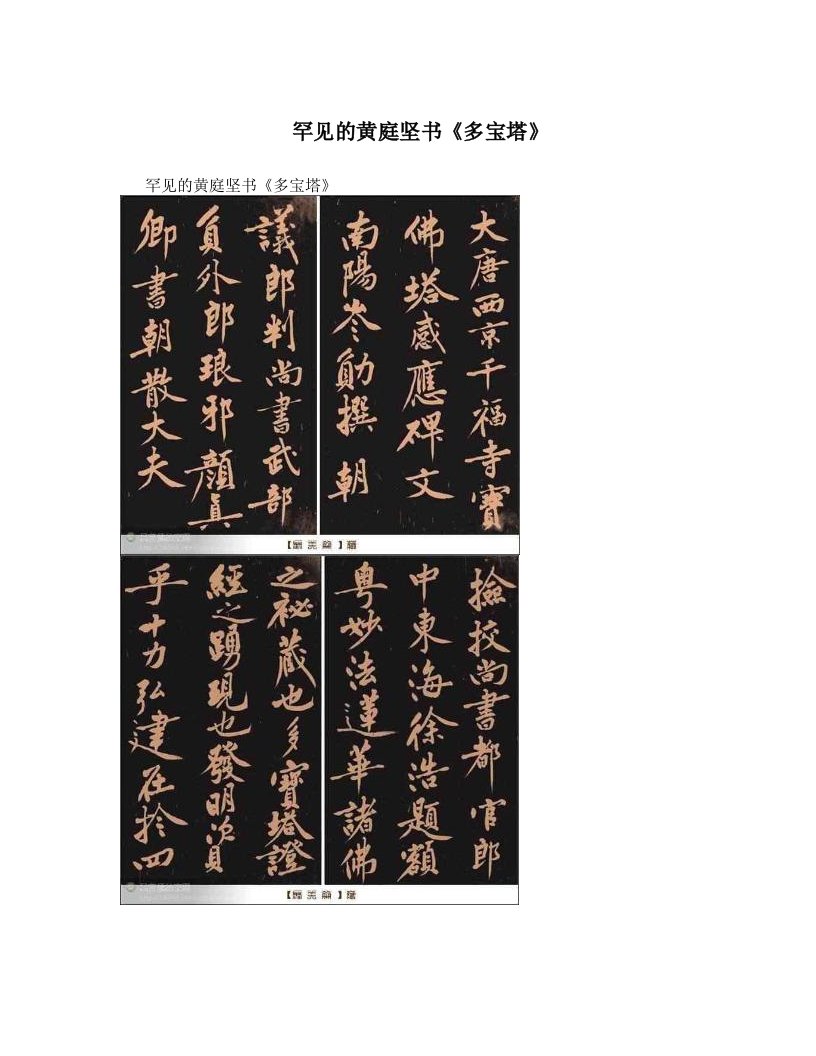 罕见的黄庭坚书《多宝塔》
罕见的黄庭坚书《多宝塔》
大唐西京千福寺寶
佛塔感應碑文
南陽岑勛撰 朝
議郎判尚書武部
員外郎琅邪顏真
卿書朝散大夫
撿挍尚書都官郎
中東海徐浩題額
粵妙法蓮華諸佛
之祕藏也多寶塔證
經之踴現也發明資
乎十力弘建在於四